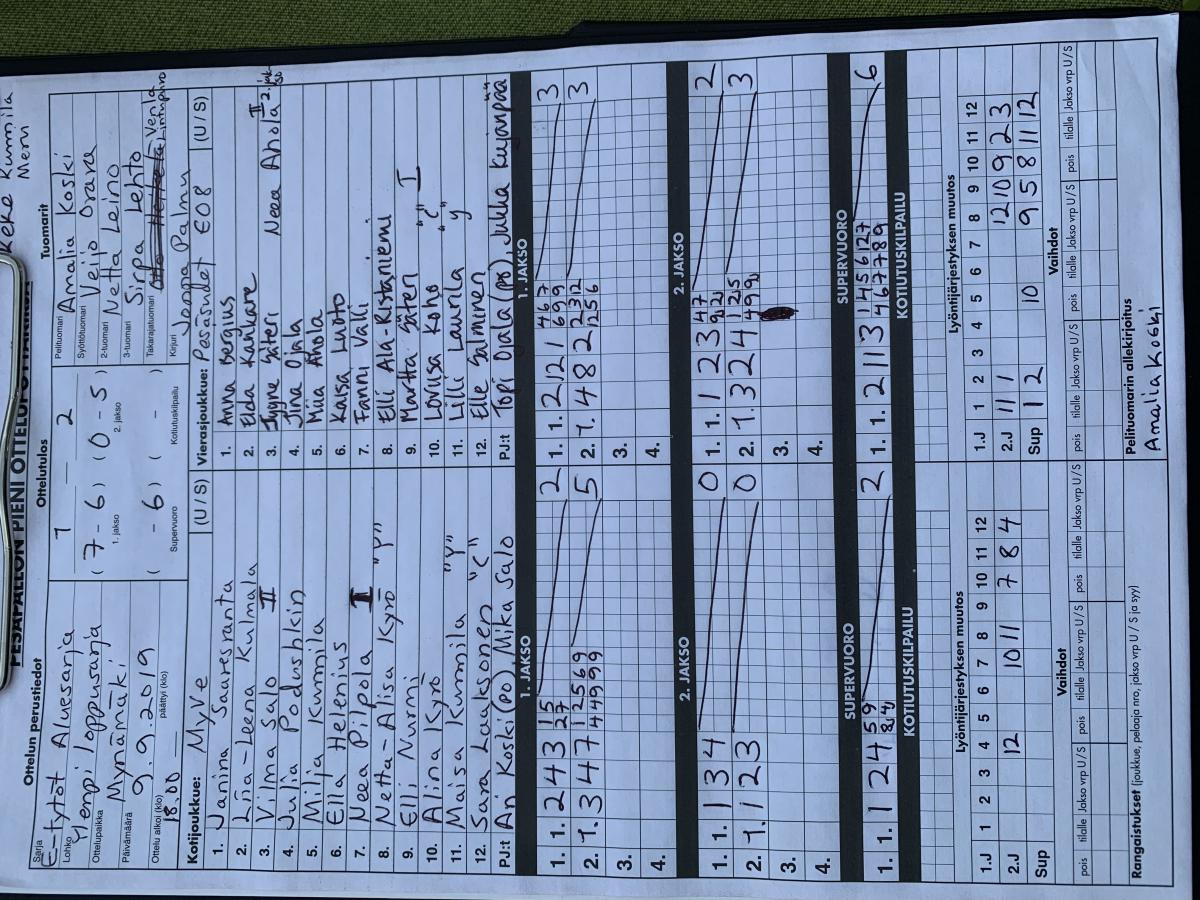 Keke Kummila
Meri
PESÄPALLON PIENI OTTELUPÖYTÄKIRJA
Ottelun perustiedot
Sarja
E-tytöt Aluesarja
Lohko
Ylempi loppusarja
Ottelupaikka
Mynämäki
Päivämäärä
9.9.2019
Ottelu alkoi (klo)
18.00
päättyi (klo)
Ottelutulos
1 2
( 7 - 6 ) ( 0 - 5 )
1. jakso 2. jakso
( - 6 ) ( - )
Supervuoro Kotiutuskilpailu
Tuomarit
Pelituomari Amalia Koski
Syöttötuomari Veijo Orava
2-tuomari Netta Leino
3-tuomari Sirpa Lehto
Takarajatuomari Venla Lintupuro
Kirjuri Joonga Palmu
Kotijoukkue: MyVe (U / S)
1. Janina Saaresranta
2. Liia-Leena Kulmala
3. Vilma Salo II
4. Julia Podushkin
5. Milja Kummila
6. Ella Helenius
7. Neea Pilpola I
8. Netta-Alisa Kyrö "Y"
9. Elli Nurmi
10. Alina Kyrö
11. Maisa Kummila "Y"
12. Sara Laaksonen "C"
PJ:t Ari Koski (po), Mika Salo
Vierasjoukkue: Pesäsudet E08 (U / S)
1. Anna Bergius
2. Elda Kahkare
3. Jyyne Säteri Neea Ahola II 2. jakso
4. Jina Ojala
5. Miia Ahola
6. Kaisa Luoto
7. Fanni Valli
8. Elli Ala-Ristaniemi
9. Martta Säteri
10. Loviisa Koho "C" I
11. Lilli Laurila "Y"
12. Elle Salminen
PJ:t Topi Ojala (po), Jukka Kujanpää
1. JAKSO
1. 1. 2 4 3 15 27 2
2. 1. 3 4 7 12569 44999 5
3.
4.
1. JAKSO
1. 1. 2 12 1 467 699 3
2. 1. 4 8 2 2312 1256 3
3.
4.
2. JAKSO
1. 1. 1 3 4 0
2. 1. 1 2 3 0
3.
4.
2. JAKSO
1. 1. 1 2 3 47 92 2
2. 1. 3 2 4 125 499 3
3.
4.
SUPERVUORO
1. 1. 1 2 4 59 84 2
SUPERVUORO
1. 1. 2 11 3 1456127 467789 6
KOTIUTUSKILPAILU
KOTIUTUSKILPAILU
Lyöntijärjestyksen muutos
1.J 1 2 3 4 5 6 7 8 9 10 11 12
2.J 12 10 11 7 8 4
Sup
Lyöntijärjestyksen muutos
1.J 1 2 3 4 5 6 7 8 9 10 11 12
2.J 11 1 12 10 9 2 3
Sup 1 2 10 9 5 8 11 12
Vaihdot
pois tilalle Jakso vrp U / S pois tilalle Jakso vrp U / S pois tilalle Jakso vrp U / S
Vaihdot
pois tilalle Jakso vrp U / S pois tilalle Jakso vrp U / S pois tilalle Jakso vrp U / S
Rangaistukset (joukkue, pelaaja nro, jakso vrp U / S ja syy)
Pelituomarin allekirjoitus
Amalia Koski